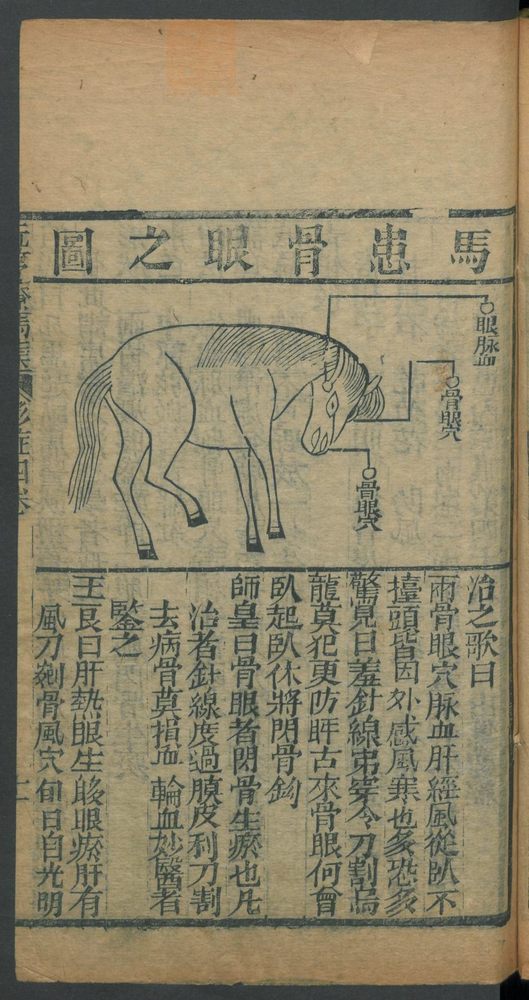 馬患骨眼之圖
眼脉血
骨眼穴
骨眼穴
治之歌曰
兩骨眼穴脉血肝經風從臥不
擡頭皆因外感風寒也多恐多
驚覓日羞針線串穿令刀割烏
龍莫犯更防睚古來骨眼何曾
臥起臥休將閃骨鈎
師皇曰骨眼者閃骨生瘀也凡
治者針線度過膜皮利刀割
去病骨莫損血輪血妙醫者
鑒之
王良曰肝熱眼生眵眼瘀肝有
風刀剜骨風穴旬日自光明